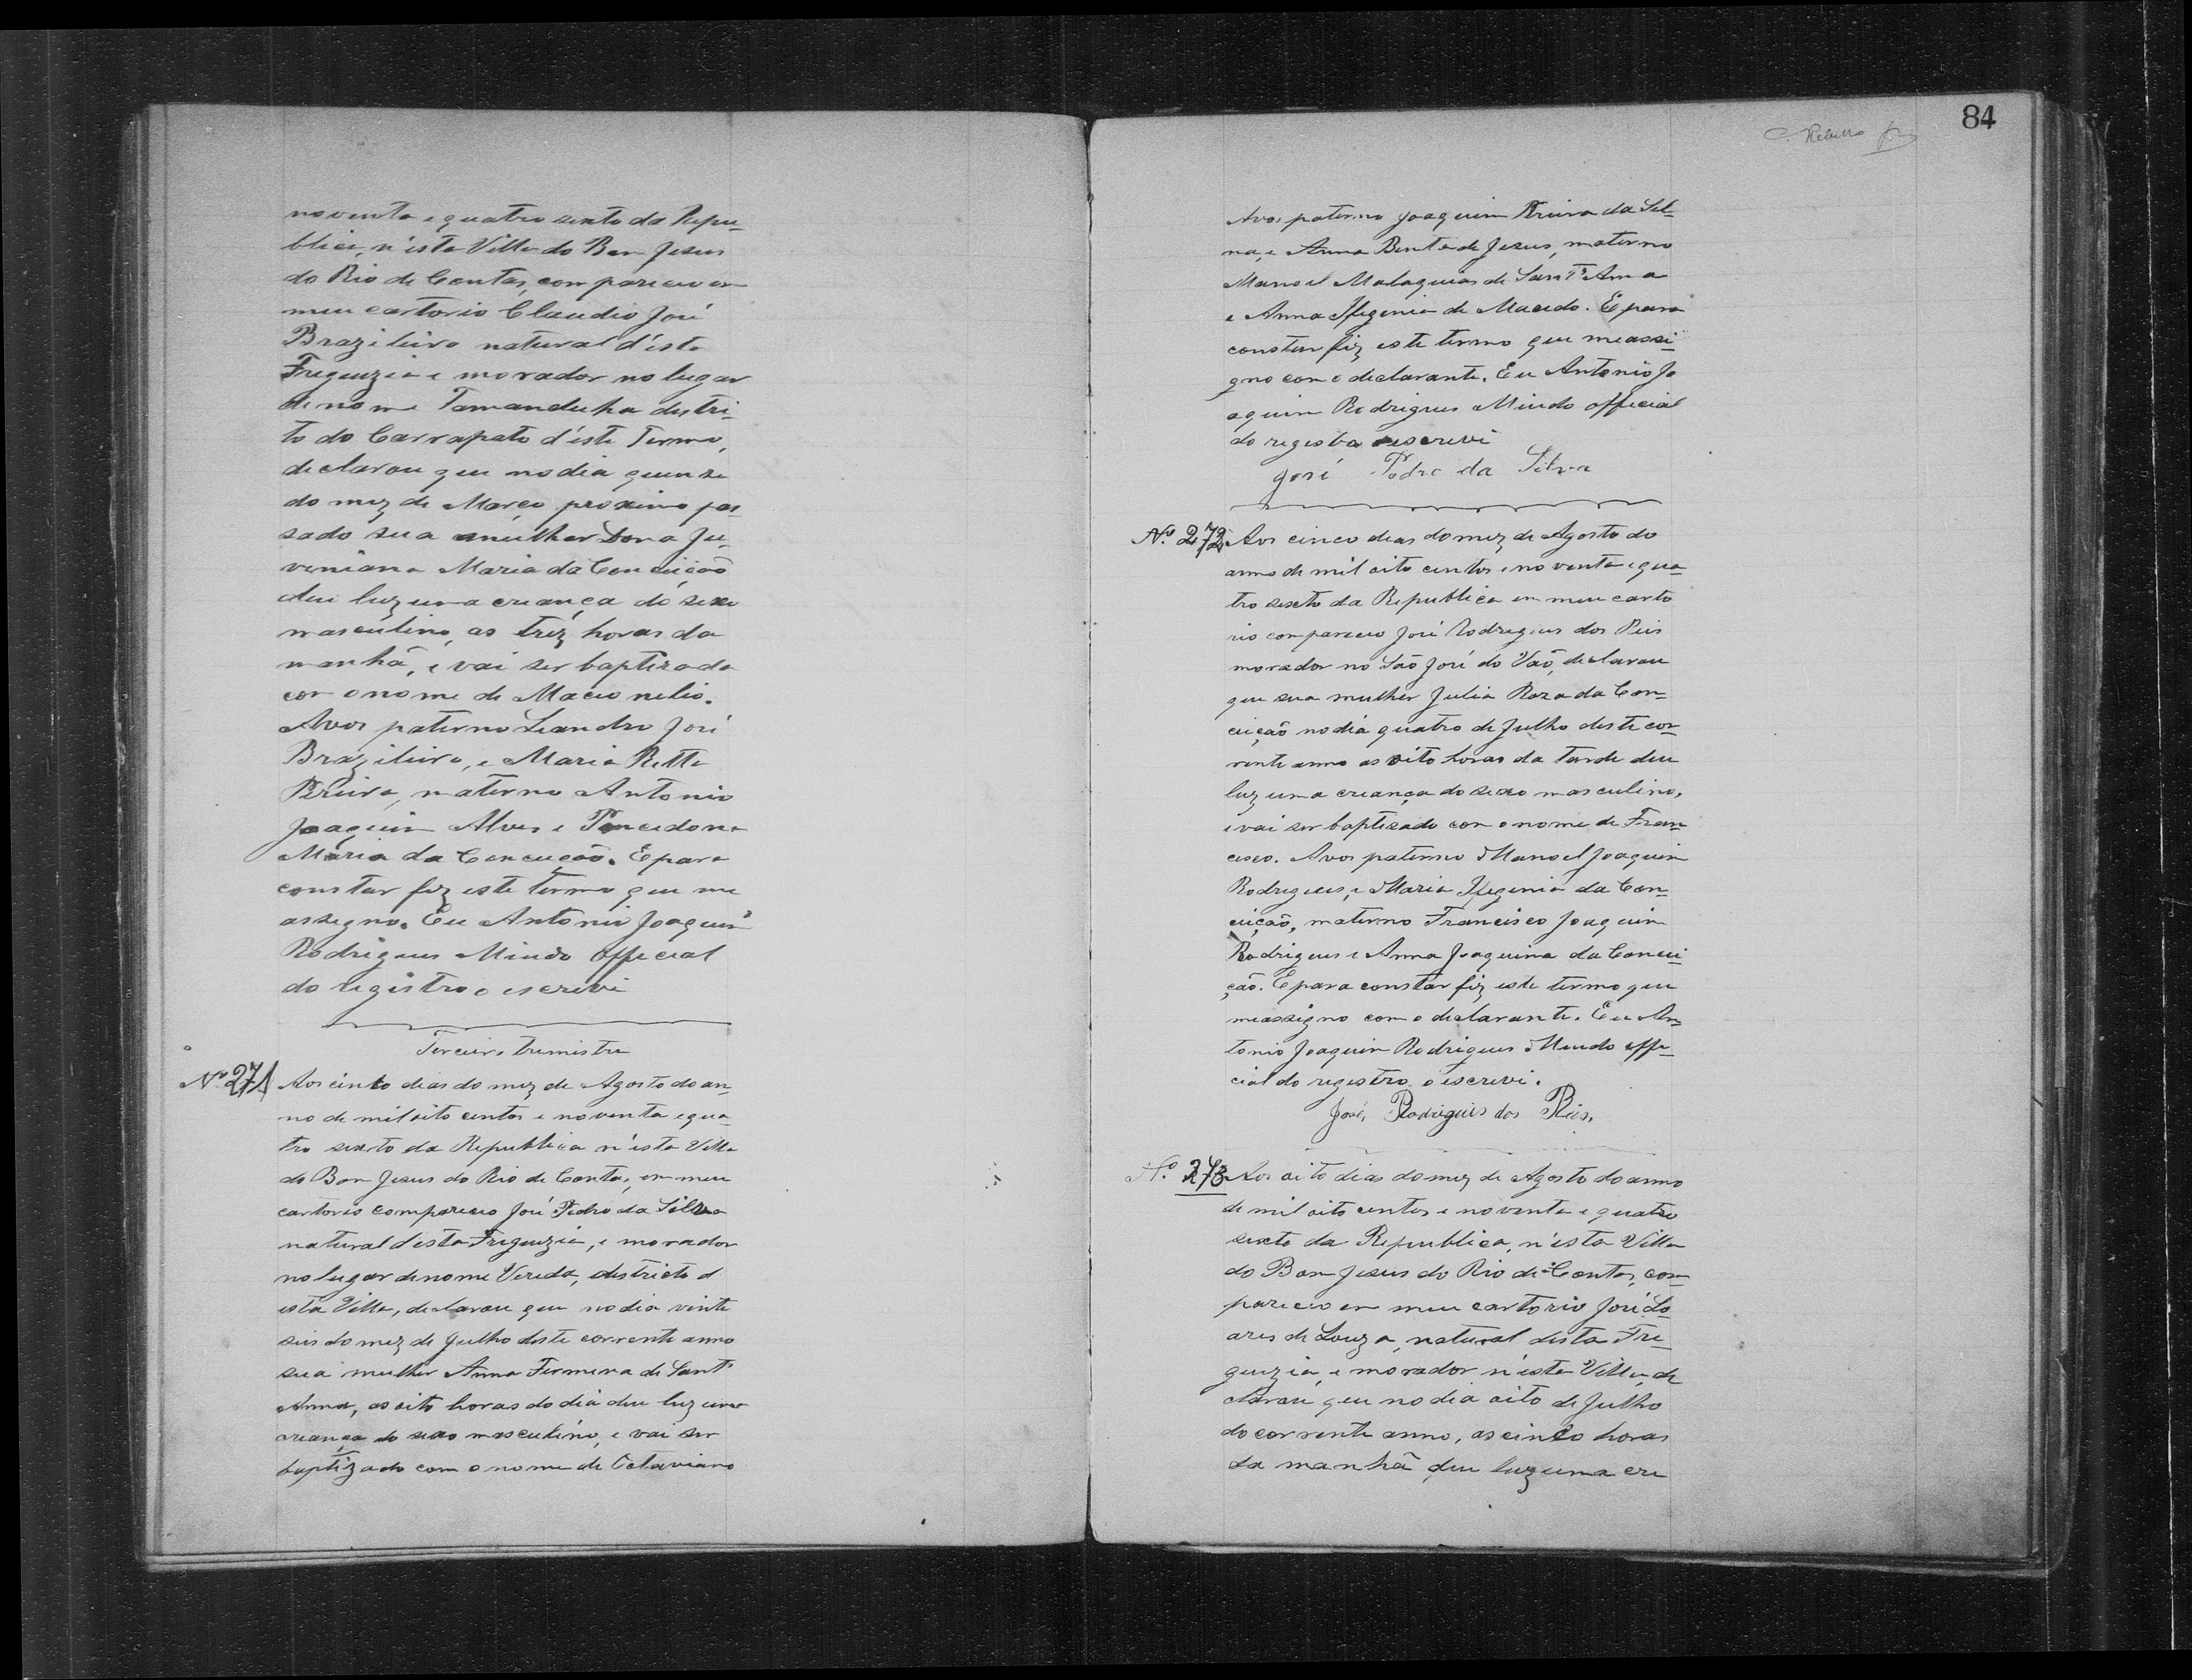 noventa e quatro sexto da Repu-
blica, n'esta Villa do Bom Jesus
do Rio de Contas, compareceu em
meu cartorio Claudio José
Brazileiro natural d'esta
Freguezia e morador no lugar
de nome Tamanducha distri-
to do Carrapato d'este Termo,
declarou que no dia quinze
do mez de Março proximo pas-
sado sua mulher Dona Ju-
veniana Maria da Conceição
deu luz uma criança do sexo
masculino, as trez horas da
manhã, e vai ser baptizado
com o nome de Macionelio.
Avos paterno Leandro José
Brazileiro, e Maria Ritta
Pereira, materno Antonio
Joaquim Alves e
Maria da Conceição. E para
constar fiz este termo que me
assigno. Eu Antonio Joaquim
Rodrigues Mindo official
do registro o escrevi
Terceiro trimistre
Nº 271 Aos cinco dias do mez de Agosto do an-
no de mil oito centos e noventa e qua-
tro sexto da Republica n'esta Villa
do Bom Jesus do Rio de Contas, em meu
cartorio compareceo José Pedro da Silva
natural desta Freguezia, e morador
no lugar denome Vereda, districto d
esta Villa, declarou que no dia vinte
seis do mez de Julho deste corrente anno
sua mulher Anna Firmina de Sant'
Anna, as oito horas do dia deu luz uma
criança do sexo masculino, e vai ser
baptizado com o nome de Octaviano
84
C. Rebello
Avos paterno Joaquim Pereira da Sil-
va, e Anna Benta de Jesus, materno
Manoel Malaquias de Sant'Anna
e Anna Ifigenia de Macedo. E para
constar fiz este termo que me assi-
gno com o declarante. Eu Antonio Jo
aquim Rodrigues Mindo official
do registro o escrevi
José Pedro da Silva
Nº 272 Aos cinco dias do mez de Agosto do
anno de mil oito centos e noventa e qua-
tro sexto da Republica em meu carto
rio compareceo José Rodrigues dos Reis
morador no São José do Vaõ, declarou
que sua mulher Julia Roza da Con-
ceição no dia quatro de Julho deste cor-
rente anno as oito horas da tarde deu
luz uma criança do sexo masculino,
e vai ser baptisado com o nome de Fran
cisco. Avos paterno Manoel Joaquim
Rodrigues, e Maria Ifigenia da Con-
ceição, materno Francisco Joaquim
Rodrigues e Anna Joaquina da Concei-
ção. E para constar fiz este termo que
me assigno com o declarante. Eu An-
tonio Joaquim Rodrigues Mindo offi-
cial do registro o escrevi.
José Rodrigues dos Reis.
Nº 273 Aos oito dias do mez de Agosto do anno
de mil oito centos e noventa e quatro
sexto da Republica, n'esta Villa
do Bom Jesus do Rio de Contas, com-
pareceo em meu cartorio José So
ares de Souza, natural desta Fre-
guezia, e morador n'esta Villa, de
clarou que no dia oito de Julho
do corrente anno, as cinco horas
da manhã deu luz uma cri